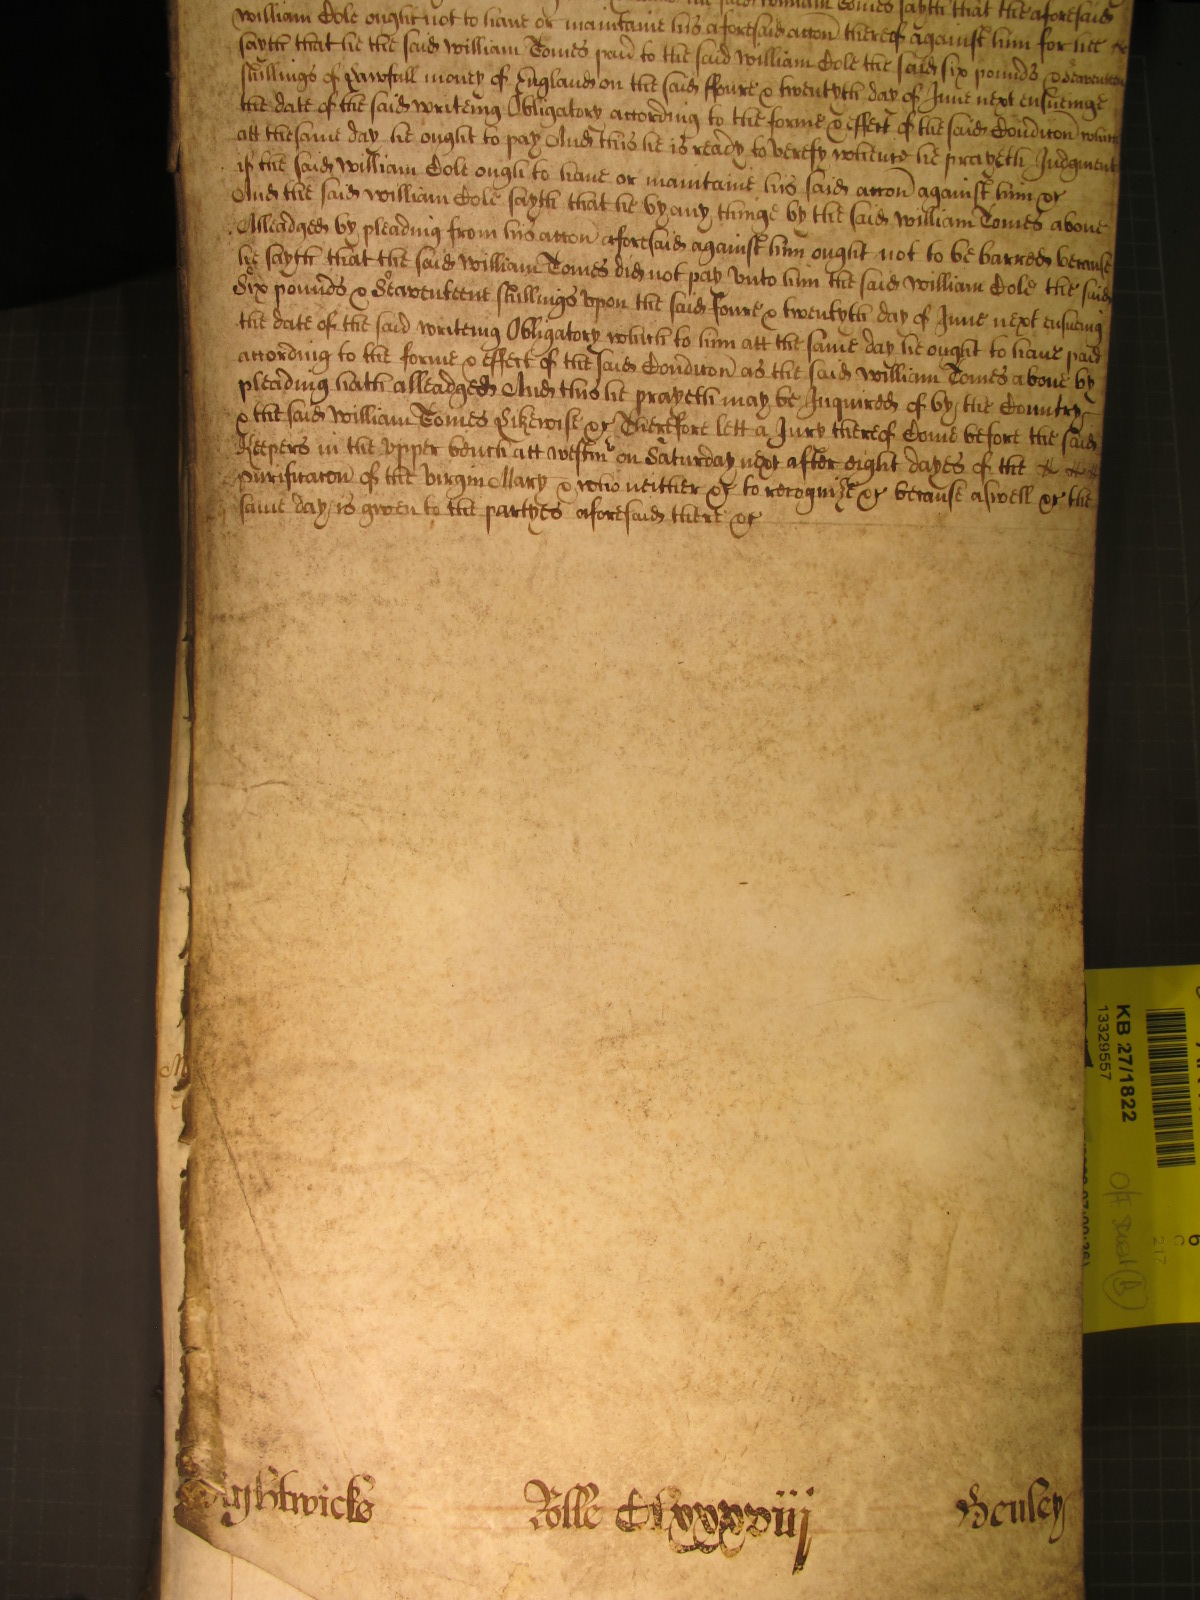 the said William Tomes sayth that the aforesaid
William Cole ought not to have or maintaine his aforesaid accon thereof against him for hee
sayth that he the said William Tomes paid to the said William Cole the said six pounds & seaventeen
shillings of Lawfull money of England on the said ffoure & twentyth day of June next ensueinge
the date of the said writeing Obligatory according to the forme & effect of the said Condicon which
att the same day he ought to pay And this he is ready to verefy whence he prayeth Judgment
if the said William Cole ought to have or maintaine his said accon against him &c
And the said William Cole sayth that he by any thinge by the said William Tomes above
Alleadged by pleading from his accon aforesaid against him ought not to be barred because
he sayth that the said William Tomes did not pay unto him the said William Cole the said
Six pounds & Seaventeene shillings upon the said foure & twentyth day of June next ensueing
the date of the said writeing Obligatory which to him att the same day he ought to have paid
according to the forme & effect of the said Condicon as the said William Tomes above by
pleading hath alleadged And this he prayeth may be Inquired of by the Country
& the said William Tomes Likewise &c Therefore lett a Jury thereof Come before the said
Keepers in the upper bench att Westmr on Saturday next after eight dayes of the
purificacon of the virgin Mary & who neither &c to recognize &c because aswell &c the
same day is given to the partyes aforesaid there &c
Rolle Clxxxxviij
Henley
KB 27/1822
13329557
217